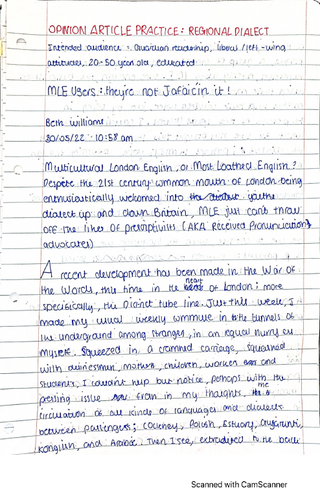 OPINION ARTICLE PRACTICE: REGIONAL DIALECT
Intended audience: Guardian readership, liberal/left-wing
attitudes, 20-50 year olds, educated
MLE Users: they're not Jafaicin it!
Beth Williams
30/05/22 10:58am
Multicultural London English, or Most Loathed English?
Despite the 21st century common mouth of London being
enthusiastically welcomed into the youths
dialect up and down Britain, MLE just can't throw
off the likes of prescriptivists (AKA Received Pronunciation
advocates)
A recent development has been made in the War of
the Words, this time in the heart of London; more
specifically, the District tube line. Just this week, I
made my usual weekly commute in the tunnels of
the underground among strangers, in an equal hurry as
myself. Squeezed in a crammed carriage, squashed
with businessmen, mothers, children, workers and
students, I couldn't help but notice, perhaps with the
pressing issue in my thoughts, the
circulation of all kinds of languages and dialects
between passengers; Cockney, Polish, Estuary, Gujarati,
Konglish, and Arabic. Then I see, to the back
Scanned with CamScanner